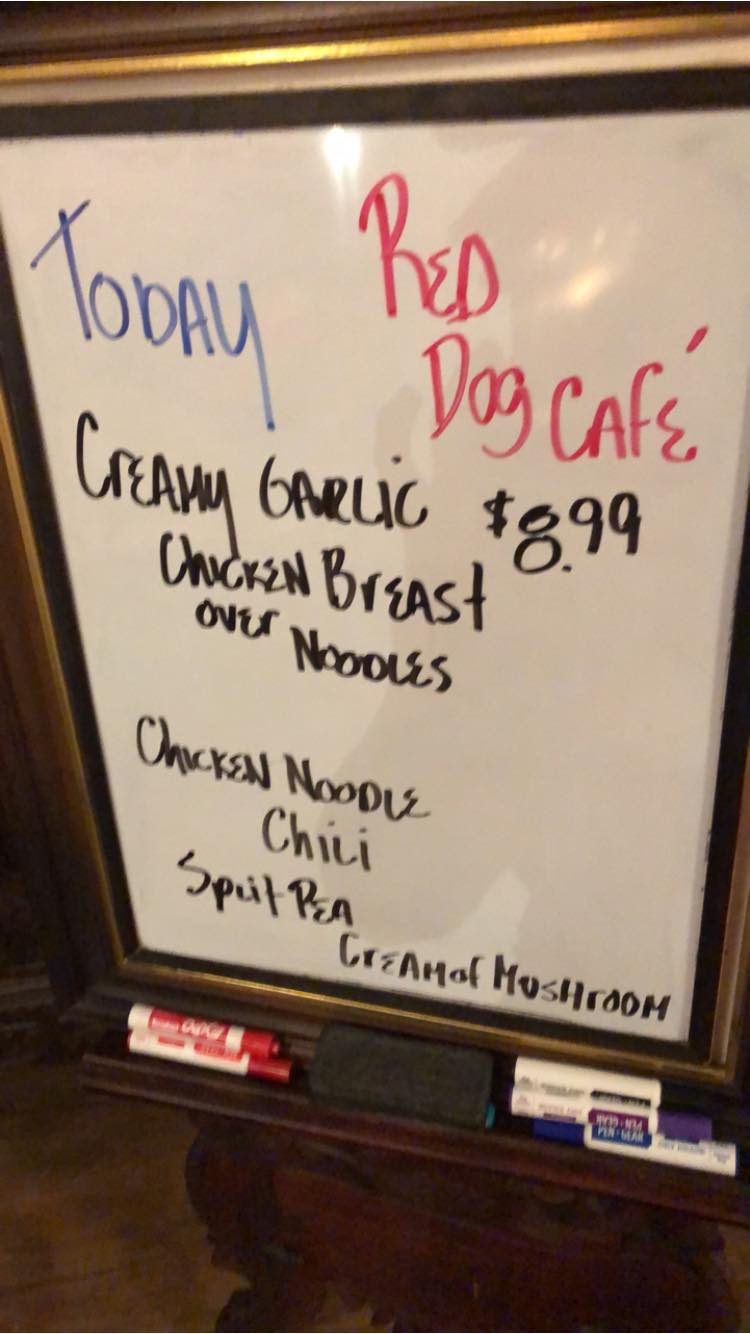 TODAY
RED
DOG CAFÉ
CREAMY GARLIC $8.99
CHICKEN BREAST
OVER
NOODLES
CHICKEN NOODLE
CHILI
SPLIT PEA
CREAM OF MUSHROOM
EXPO
PEN+GEAR
PEN+GEAR